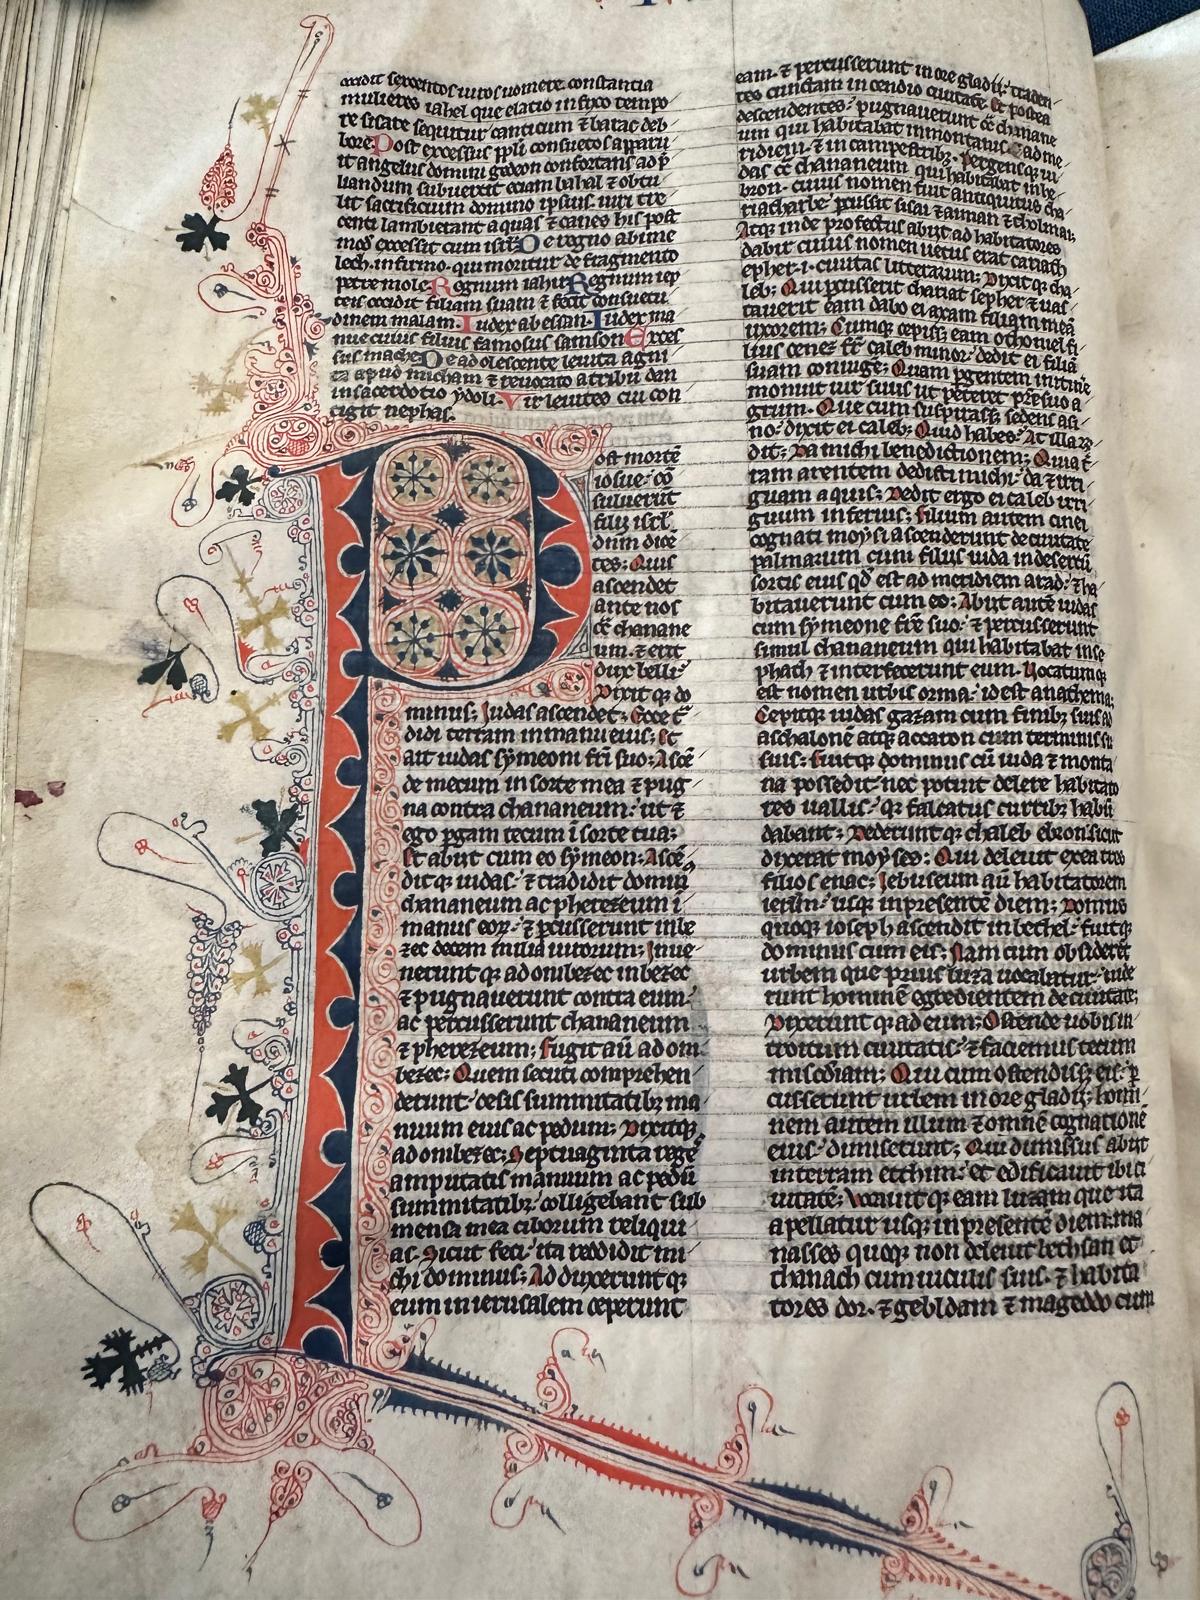 occidit sexcentos uiros uomere. constantia
mulieres iahel que clauo infixo tempo
re sisare sequitur canticum ⁊ barac deb
bore. Post excessus ppli consuetos apparu
it angelus domini gedeon confortans ad p̄
liandum subuertit eciam bahal ⁊ obtu
lit sacrificium domino ipsius. uiri tre
centi lambierant aquas ⁊ canes his post
De regno abime
lech. infirmo. qui moritur de fragmento
petre mole. Regnum iahir Regnum iep
teis occidit filiam suam ⁊ fecit consuetu
dinem malam. Iudex abessan. Iudex ma
nue cuius filius famosus samson Exces
sus mache De adolescente leuita agni
ta apud micham ⁊ reuocato a tribu dan
in sacerdotio ydoli. Vir leuites cui con
tigit nephas.
Post mortē
iosue. cō
suluerūt
filij isrl̄
dnm dicē
tes: Quis
ascendet
ante nos
cō̄ chanane
um. ⁊ erit
dux belli.
Dixitqꝫ do
minus; Iudas ascendet: Ecce t̄
didi terram in manu eius: Et
ait iudas symeoni fr̄i suo: Ascē
de mecum in sorte mea ⁊ pug
na contra chananeum. ut ⁊
ego pgam tecum ī sorte tua;
Et abiit cum eo symeon: Ascē
ditqꝫ iudas. ⁊ tradidit domin̄
chananeum ac pherezeum ī
manus eorꝫ. ⁊ pcusserunt in be
zec decem milia uirorum: Inue
neruntqꝫ adonibezec in bezec
⁊ pugnauerunt contra eum.
ac percusserunt chananeum
⁊ pherezeum; Fugit aū adoni
bezec: Quem secuti comprehen
derunt. cesis summitatibꝫ ma
nuum eius ac pedum; Dixitqꝫ
adonibezec; Septuaginta rege
amputatis manuum ac pedū
summitatibꝫ. colligebant sub
mensa mea ciborum reliqui
as. Sicut feci. ita reddidit mi
chi dominus; Adduxeruntqꝫ
eum in ierusalem ceperunt
eam. ⁊ percusserunt in ore gladij. traden
tes cunctam incendio ciuitatē. Et postea
descendentes. pugnauerunt cō̄ chanane
um qui habitabat in montanis. ⁊ ad me
ridiem. ⁊ in campestribꝫ. Pergensqꝫ iu
das cō̄ chananeum qui habitabat in he
bron. cuius nomen fuit antiquitus ca
riacharbe pcussit sisai ⁊ aiman ⁊ tholmai;
Atqꝫ inde profectus abiit ad habitatores
dabir cuius nomen uetus erat cariach
epher. i. ciuitas litterarum; Dixitqꝫ cha
leb; Qui pcusserit chariat sepher ⁊ uas
tauerit eam dabo ei axam filiam meā
uxorem; Cumqꝫ cepiss; eam othoniel fi
lius cenez fr̄ caleb minor. dedit ei filiā
suam coniuge; Quam pgentem in itine
monuit uir suus ut peteret a patre suo a
grum. Que cum suspirass; sedens asi
no. dixit ei caleb; Quid habes. At illa r̄
dit; Da michi benedictionem; Quia t̄
ram arentem dedisti michi. da ⁊ irri
guam aquis; Dedit ergo ei caleb irri
guum inferius; Filium autem cinei
cognati moysi ascenderunt de ciuitate
palmarum cum filiis iuda in desertū
sortis eius qd̄ est ad meridiem arad. ⁊ ha
bitauerunt cum eo; Abiit autē iudas
cum symeone fr̄e suo. ⁊ percusserunt
simul chananeum qui habitabat in se
phath ⁊ interfecerunt eum. Vocatumqꝫ
est nomen urbis orma. id est anathema;
Cepitqꝫ iudas gazam cum finibꝫ suis ⁊
aschalonē atqꝫ accaron cum terminis su
suis; Fuitqꝫ dominus cū iuda ⁊ monta
na possedit. nec potuit delere habitato
res uallis. qꝫ falcatus curribꝫ habū
dabant; Dederuntqꝫ chaleb ebron sicut
dixerat moyses; Qui deleuit ex ea tres
filios enac; Iebuseum aū habitatorem
ierlm̄. usqꝫ in presentē diem; Domus
quoqꝫ ioseph ascendit in bethel. fuitqꝫ
dominus cum eis; Nam cum obsiderēt
urbem que prius luza uocabatur. uide
runt hominē egredientem de ciuitate;
Dixeruntqꝫ ad eum; Ostende uobis in
troitum ciuitatis. ⁊ faciemus tecum
miscdiam; Qui cum ostendiss; eis. p̄
cusserunt urbem in ore gladij; homi
nem autem illum ⁊ omnē cognationē
eius. dimiserunt; Qui dimissus abiit
in terram etthim. et edificauit ibi ci
uitatē; Vocauitqꝫ eam luzam que ita
apellatur usqꝫ in presentē diem. ma
nasses quoqꝫ non deleuit bethsan et
thanach cum uiculis suis. ⁊ habita
tores dor. ⁊ gebldam ⁊ mageddo cum